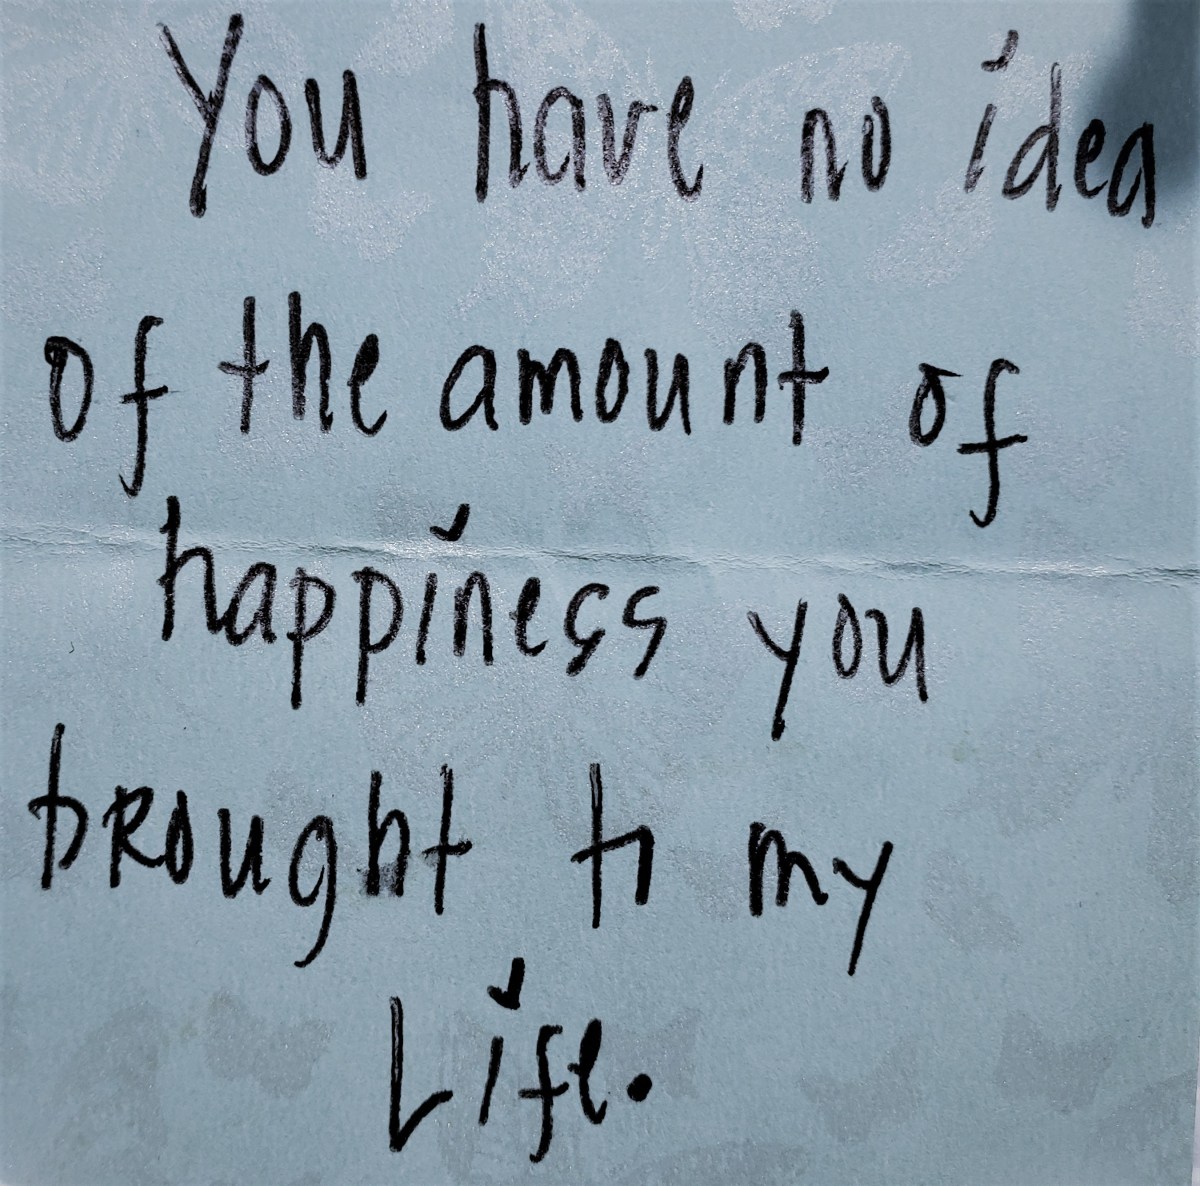 You have no idea
of the amount of
happiness you
brought to my
Life.